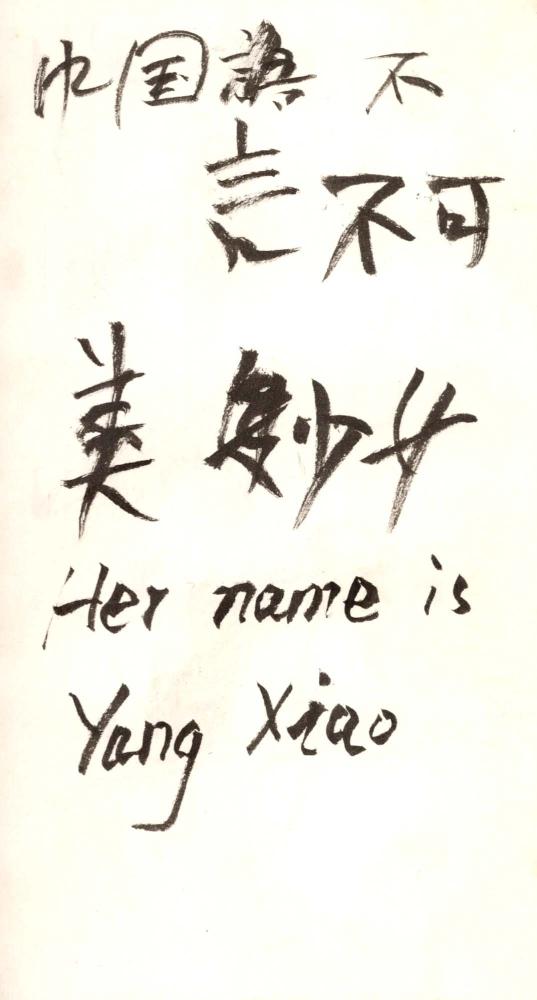 中国語 不
言不可
美 少女
Her name is
Yang Xiao